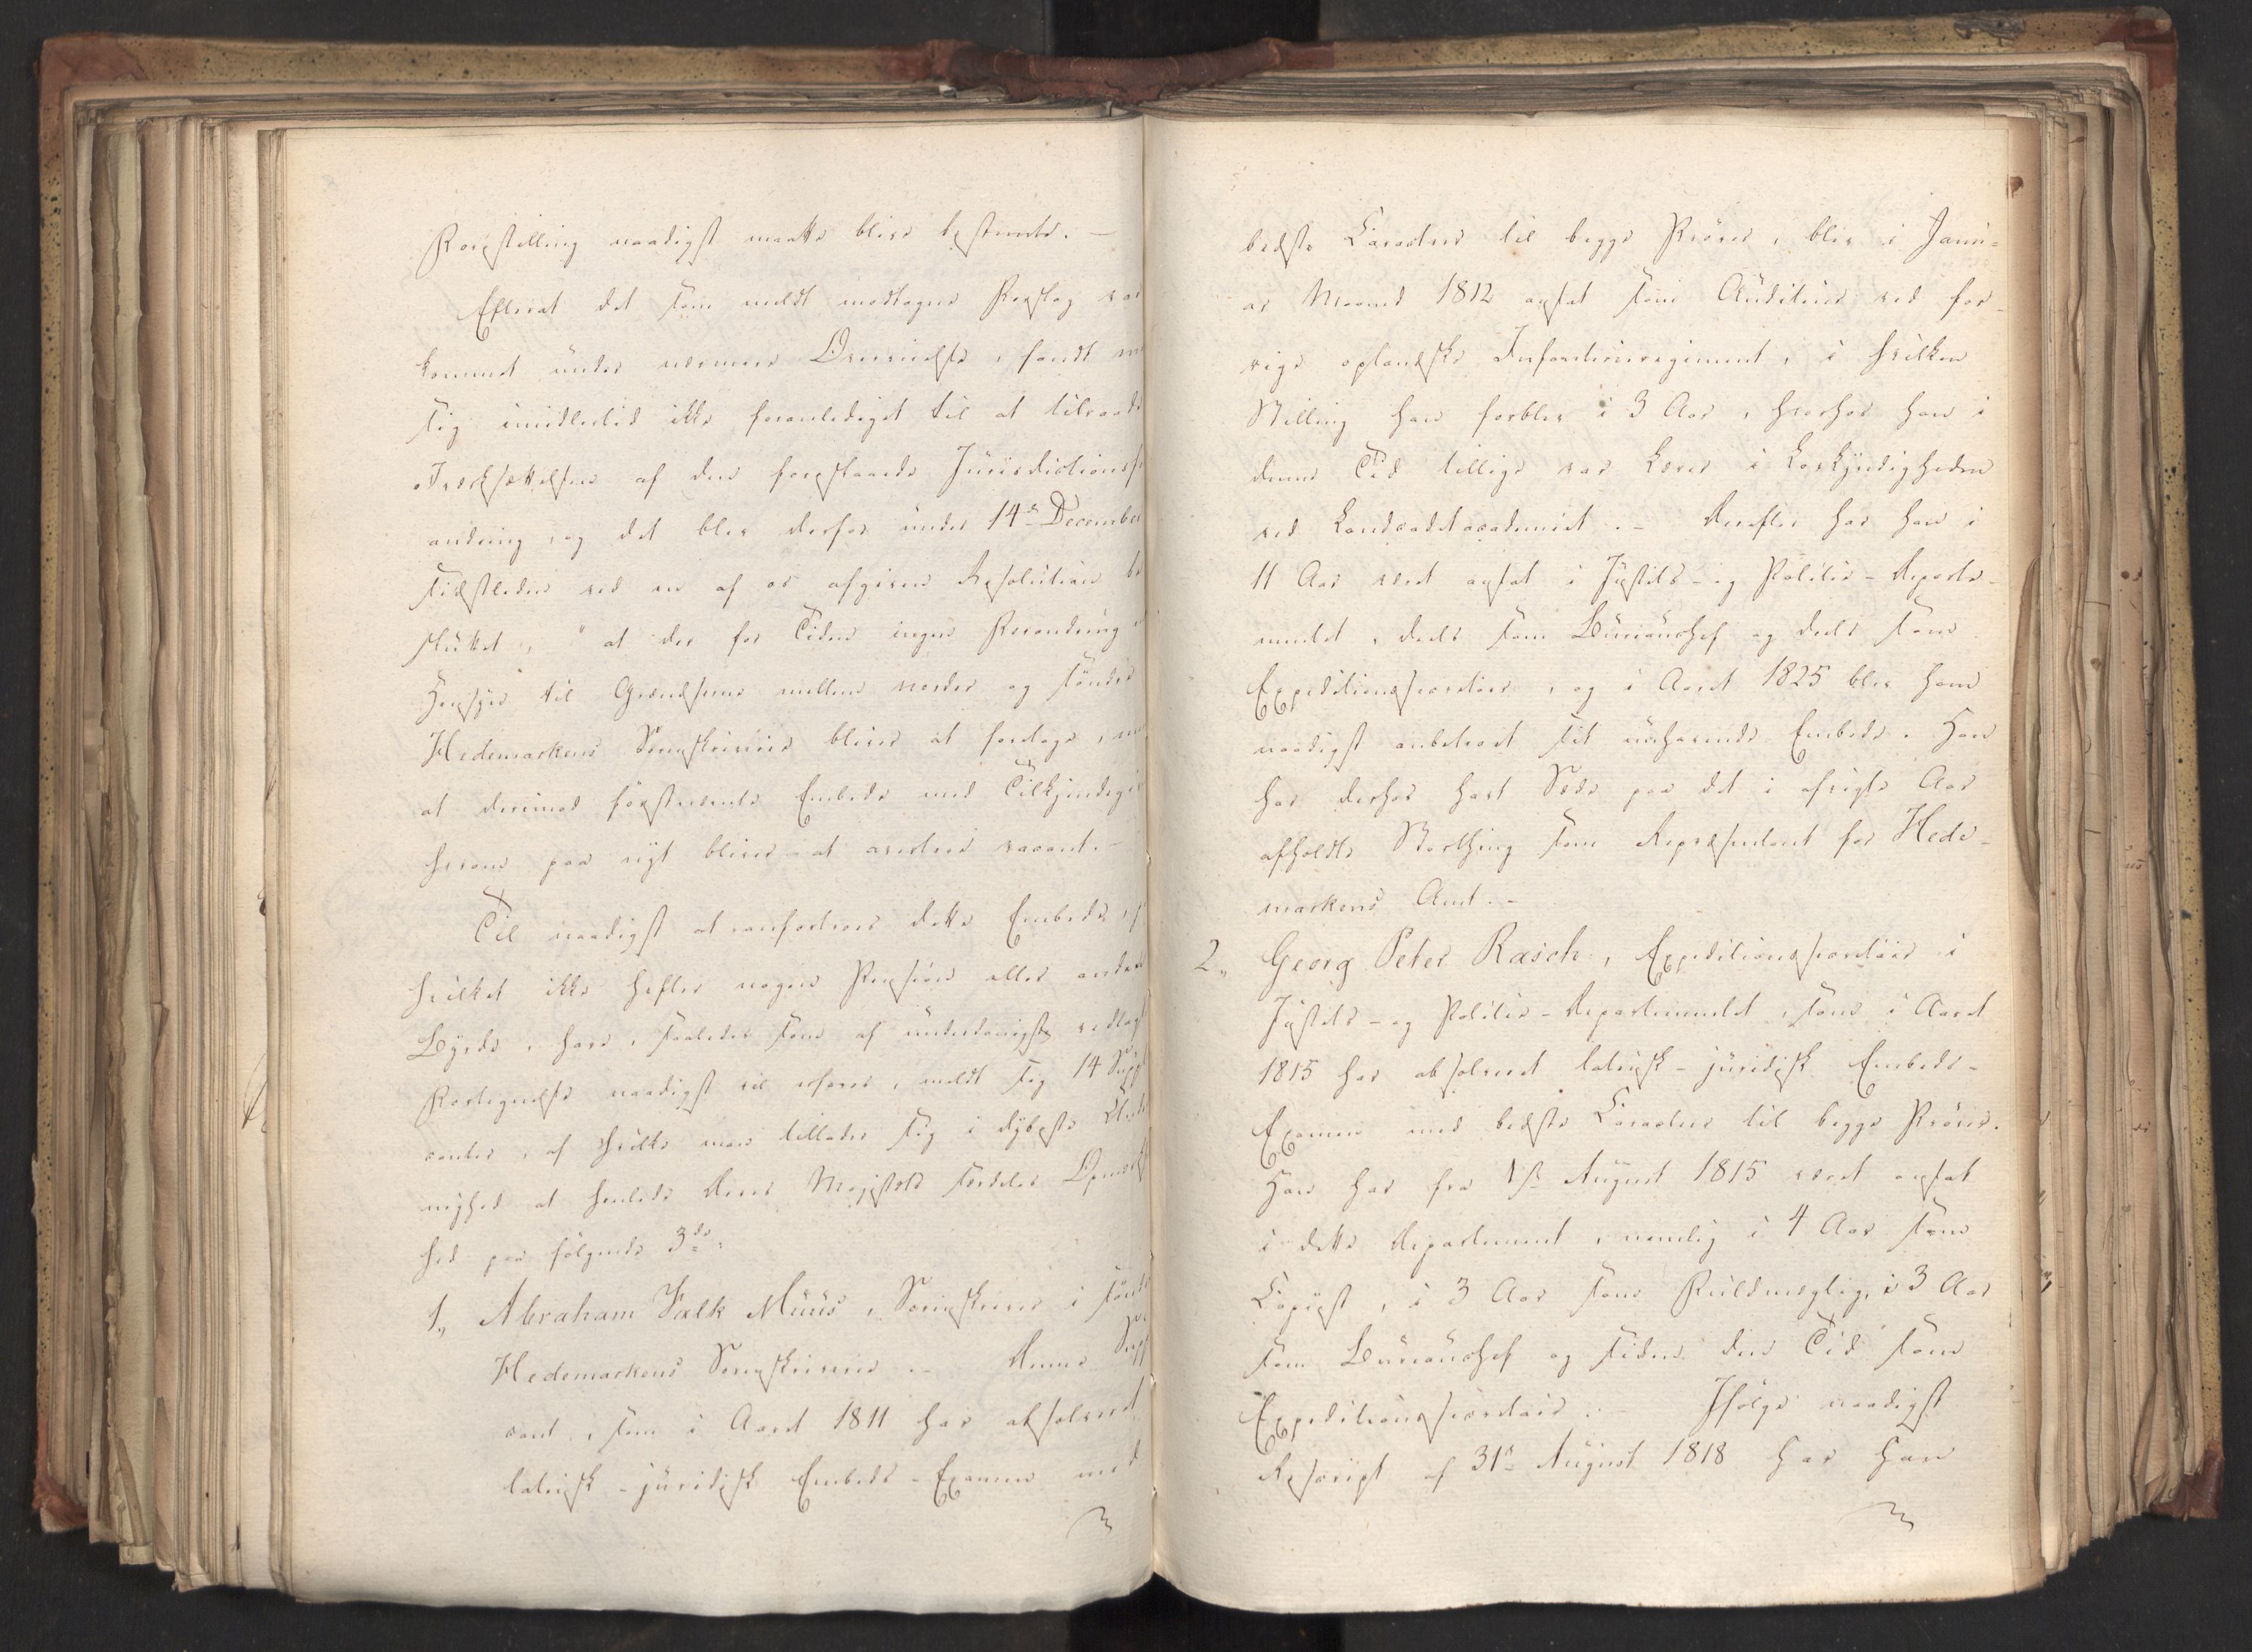 Forestilling naadigst maatte blive bestemt. —
Efterat det som meldt modtagne Forslag var
kommet under nærmere Overveielse, fandt m
sig imidlertid ikke foranlediget til at tilraade
Iværksættelsen af den foreslaaede Jurisdictionsfor
andring, og det blev derfor under 14de December
sidstleden ved en af os afgiven Resolution be
sluttet, "at der for Tiden ingen Forandring i
Hensyn til Grændserne mellem nordre og søndre
Hedemarkens Sorenskriverier bliver at foretage, m
at derimod førstnævnte Embede med Tilkjendegiv
herom paa nyt bliver at avertere vacant. —
Til naadigst at vorde dette Embede,
hvilket ikke hefter nogen Pension eller anden
Byrde, have, saaledes som af underdanigst vedlagte
Fortegnelse naadigst vil erfares, meldt sig 14 Supp
canter, af hvilke man tillader sig i dybeste Under
nighed at henlede Deres Majestæts særdeles Opmærk
hed paa følgende 3de:
1, Abraham Falk Müüs, Sorenskriver i søndre
Hedemarkens Sorenskriverie. — Denne Suppli
cant, som i Aaret 1811 har absolveret
latinsk-juridisk Embeds-Examen med
bedste Caracteer til begge Prøver, blev i Janu-
ar Maaned 1812 ansat som Auditeur ved for-
rige oplandske Infanterieregiment, i hvilken
Stilling han forblev i 3 Aar, hvorhos han i
denne Tid tillige var Lærer i Lovkyndigheden
ved Landcadetacademiet. — Derefter har han i
11 Aar været ansat i Justits- og Politie-Departe-
mentet, deels som Bureauchef og deels som
Expeditionssecretair, og i Aaret 1825 blev ham
naadigst anbetroet sit nuhavende Embede. Han
har derhos havt Sæde paa det i afvigte Aar
afholdte Storthing som Repræsentant for Hede-
markens Amt. —
2, Georg Peter Rasch, Expeditionssecretair i
Justits- og Politie-Departementet, som i Aaret
1815 har absolveret latinsk-juridisk Embeds-
Examen med bedste Caracteer til begge Prøver.
Han har fra 1ste August 1815 været ansat
i dette Departement, nemlig i 4 Aar som
Copiist, i 3 Aar som Fuldmægtig, i 3 Aar
som Bureauchef og siden den Tid som
Expeditionssecretair. — Ifølge naadigst
Rescript af 31te August 1818 har han